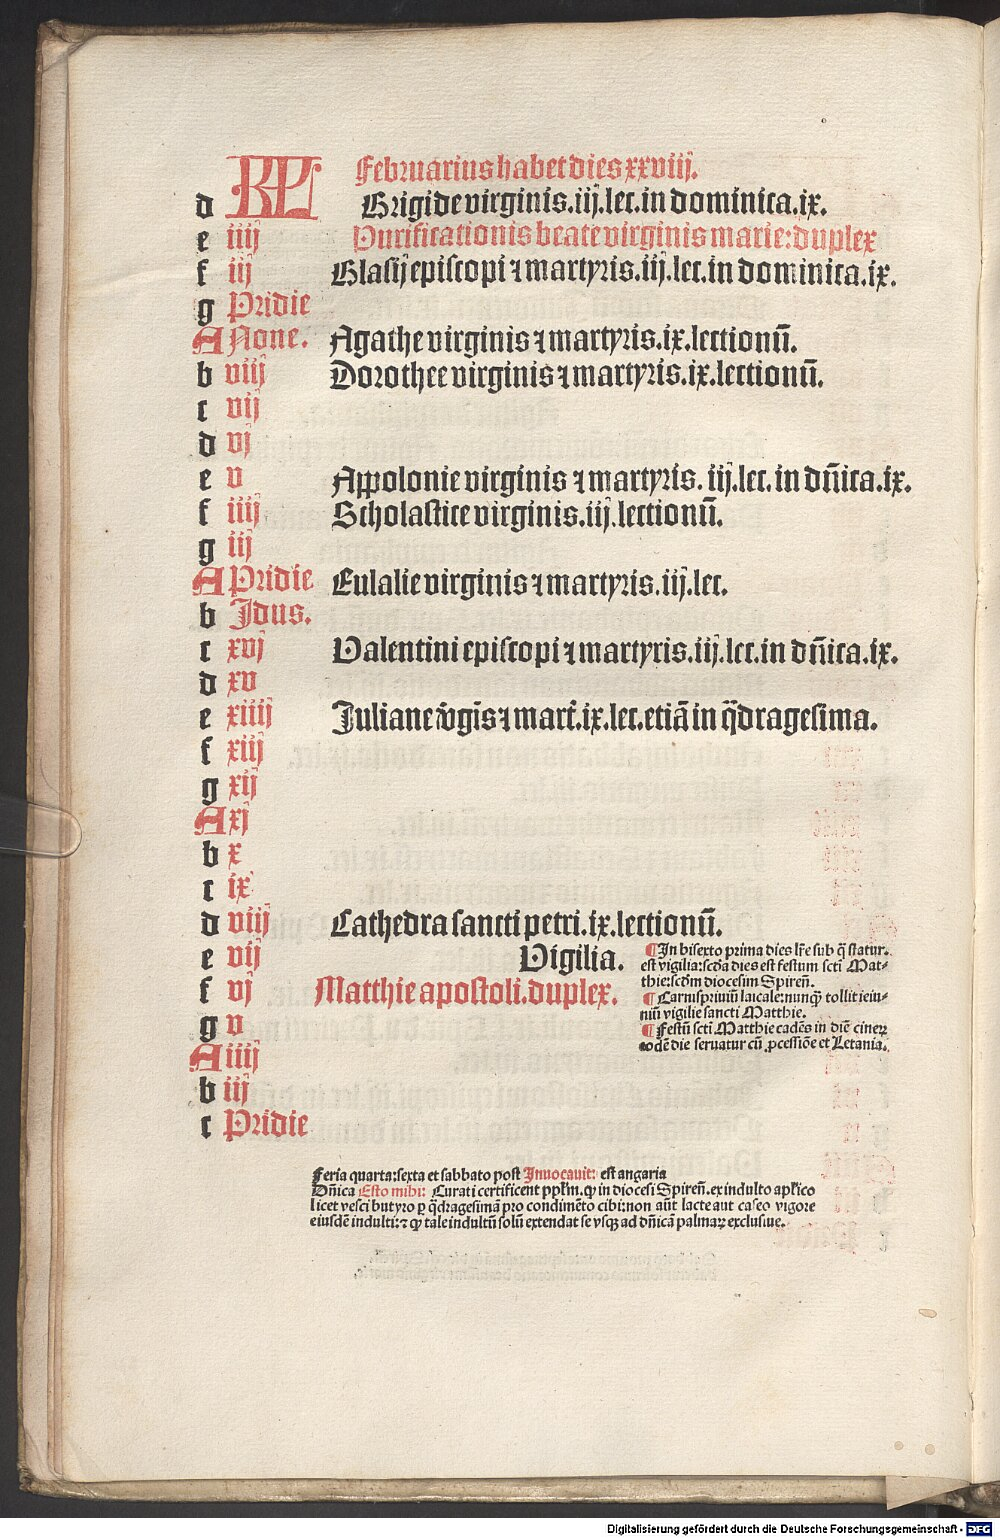 KL Februarius habet dies xxviij.
d Brigide virginis.iij.lec.in dominica.ix.
e iiij Purificationis beate virginis marie:duplex
f iij Blasij episcopi ⁊ martyris.iij.lec.in dominica.ix.
g Pridie
A None. Agathe virginis ⁊ martyris.ix.lectionū.
b viij Dorothee virginis ⁊ martyris.ix.lectionū.
c vij
d vj
e v Appolonie virginis ⁊ martyris. iij.lec. in dn̄ica.ix.
f iiij Scholastice virginis.iij.lectionū.
g iij
A Pridie Eulalie virginis ⁊ martyris.iij.lec.
b Idus.
c xvj Valentini episcopi ⁊ martyris.iij.lec.in dn̄ica.ix.
d xv
e xiiij Juliane v̄gīs ⁊ mart̄.ix.lec.etiā in q̄dragesima.
f xiij
g xij
A xj
b x
c ix
d viij Cathedra sancti petri.ix.lectionū.
e vij Vigilia.
f vj Matthie apostoli.duplex.
g v
A iiij
b iij
c Pridie
¶ In bisexto prima dies lr̄e sub q̄ statur.
est vigilia:scd̄a dies est festum sct̄i Mat-
thie:scd̄m diocesim Spireń.
¶ Carnispriuiū laicale:nunq̄ tollit ieiu-
niū vigilie sancti Matthie.
¶ Festū sct̄i Matthie cadēs in diē cineꝝ
eodē die seruatur cū ꝓcessiōe et Letania.
Feria quarta:sexta et sabbato post Inuocauit: est angaria
Dn̄ica Esto mihi: Curati certificent ppl̄m.ꝙ in diocesi Spireń.ex indulto apl̄ico
licet vesci butyro ꝑ q̄dragesimā pro condimēto cibi:non aūt lacte aut caseo vigore
eiusdē indulti:⁊ ꝙ tale indultū solū extendat se vsqꝫ ad dn̄icā palmaꝝ exclusiue.
Digitalisierung gefördert durch die Deutsche Forschungsgemeinschaft - DFG